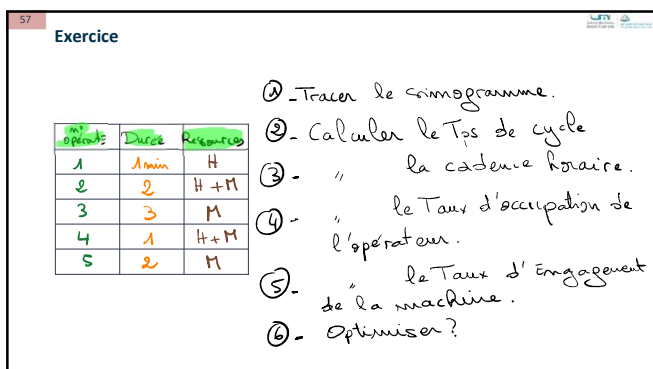 57
Exercice
n° opérat° Durée Ressources
1 1min H
2 2 H+M
3 3 M
4 1 H+M
5 2 M
① - Tracer le simogramme.
② - Calculer le Tps de cycle
③ - " la cadence horaire.
④ - " le Taux d'occupation de
l'opérateur.
⑤ - " le Taux d'Engagement
de la machine.
⑥ - Optimiser ?